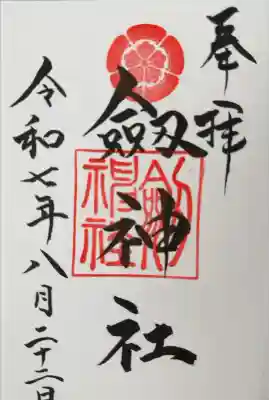 奉拝
劔神社
令和七年八月二十二日